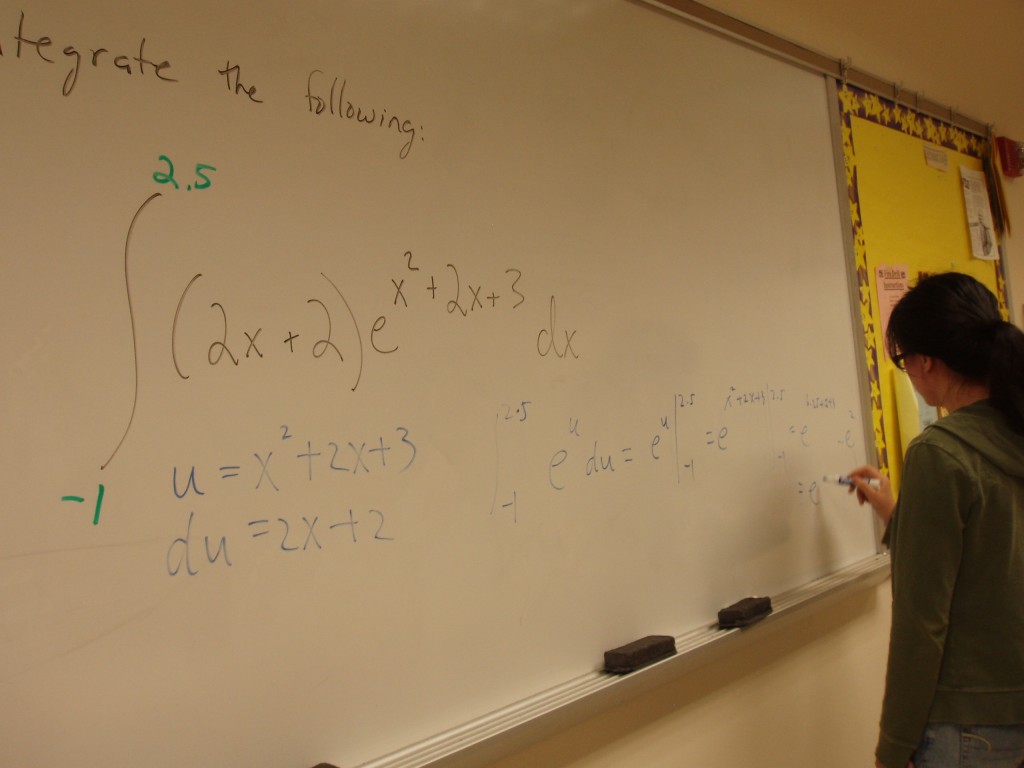 ntegrate the following:
2.5
∫ (2x+2)e^x²+2x+3 dx
-1
u = x²+2x+3
du = 2x+2
∫ 2.5 -1 e^u du = e^u | 2.5 -1 = e^x²+2x+3 | 2.5 -1 = e - e²
= e